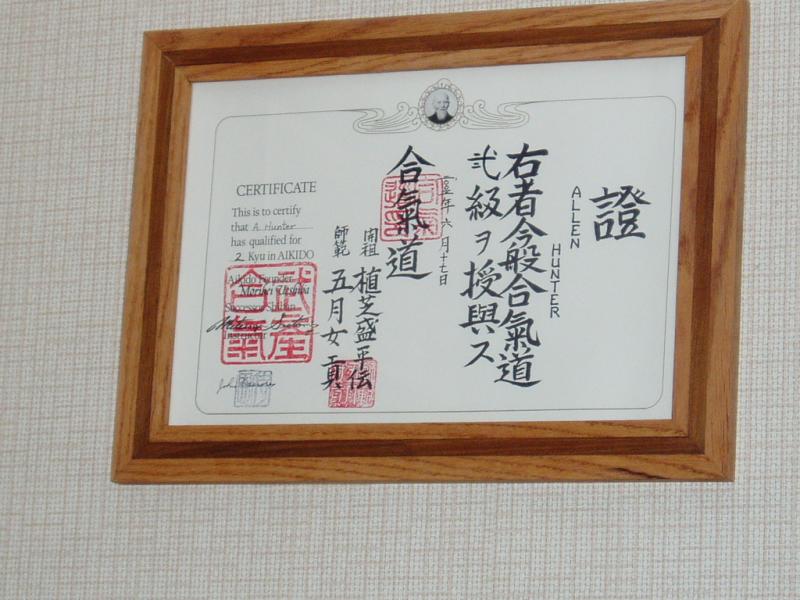 證
ALLEN
HUNTER
右者今般合氣道
弐級ヲ授與ス
年六月十七日
合氣道
開祖 植芝盛平伝
師範 五月女貢
CERTIFICATE
This is to certify
that A Hunter
has qualified for
2 Kyu in AIKIDO
Aikido Founder
Morihei Ueshiba
Shihan
武産
合氣